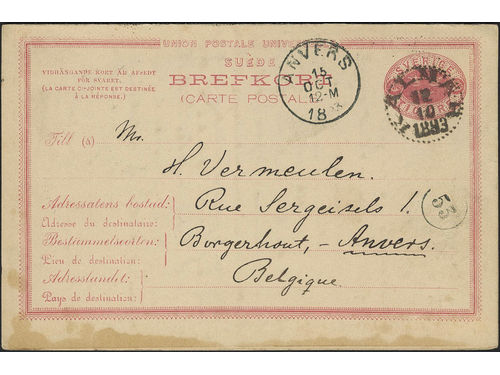 UNION POSTALE UNIVER
SUÈDE
BREFKORT
(CARTE POSTALE)
VIDHÄNGANDE KORT ÄR AFSEDT
FÖR SVARET.
(LA CARTE CI-JOINTE EST DESTINÉE
À LA RÉPONSE.)
ANVERS
15
12-M
18
SVERIGE
12
10
Till (à)
Mr.
H. Vermeulen.
Adressatens bostad:
Rue Sergeisels 1.
53
Adresse du destinataire:
Bestämmelseorten:
Borgerhout, - Anvers.
Lieu de destination:
Belgique.
Adresslandet:
Pays de destination: